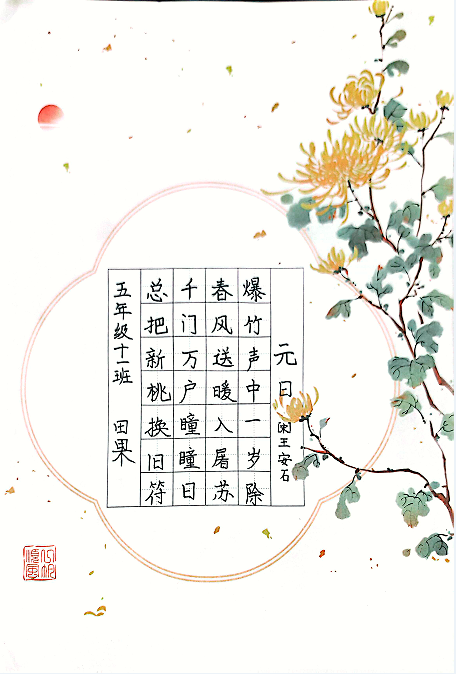 元日 王安石
爆竹声中一岁除
春风送暖入屠苏
千门万户瞳瞳日
总把新桃换旧符
五年级十一班 田果